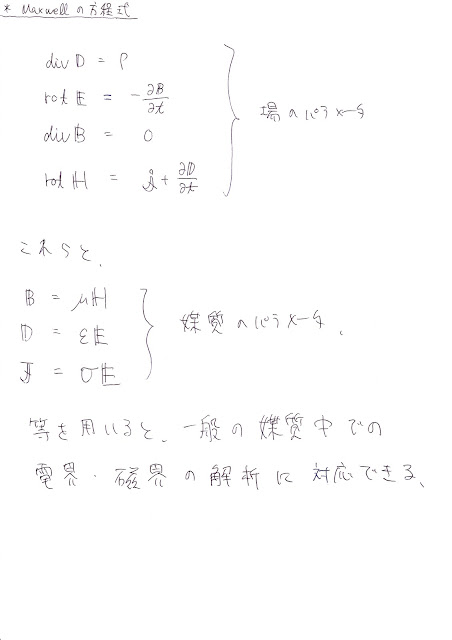 * Maxwellの方程式
div𝔻 = ρ
rot𝔼 = -∂𝔹/∂t
div𝔹 = 0
rotℍ = 𝕚 + ∂𝔻/∂t
場のパラメータ
これらと、
𝔹 = μℍ
𝔻 = ε𝔼
𝕁 = σ𝔼
媒質のパラメータ、
等を用いると、一般の媒質中での
電界・磁界の解析に対応できる、